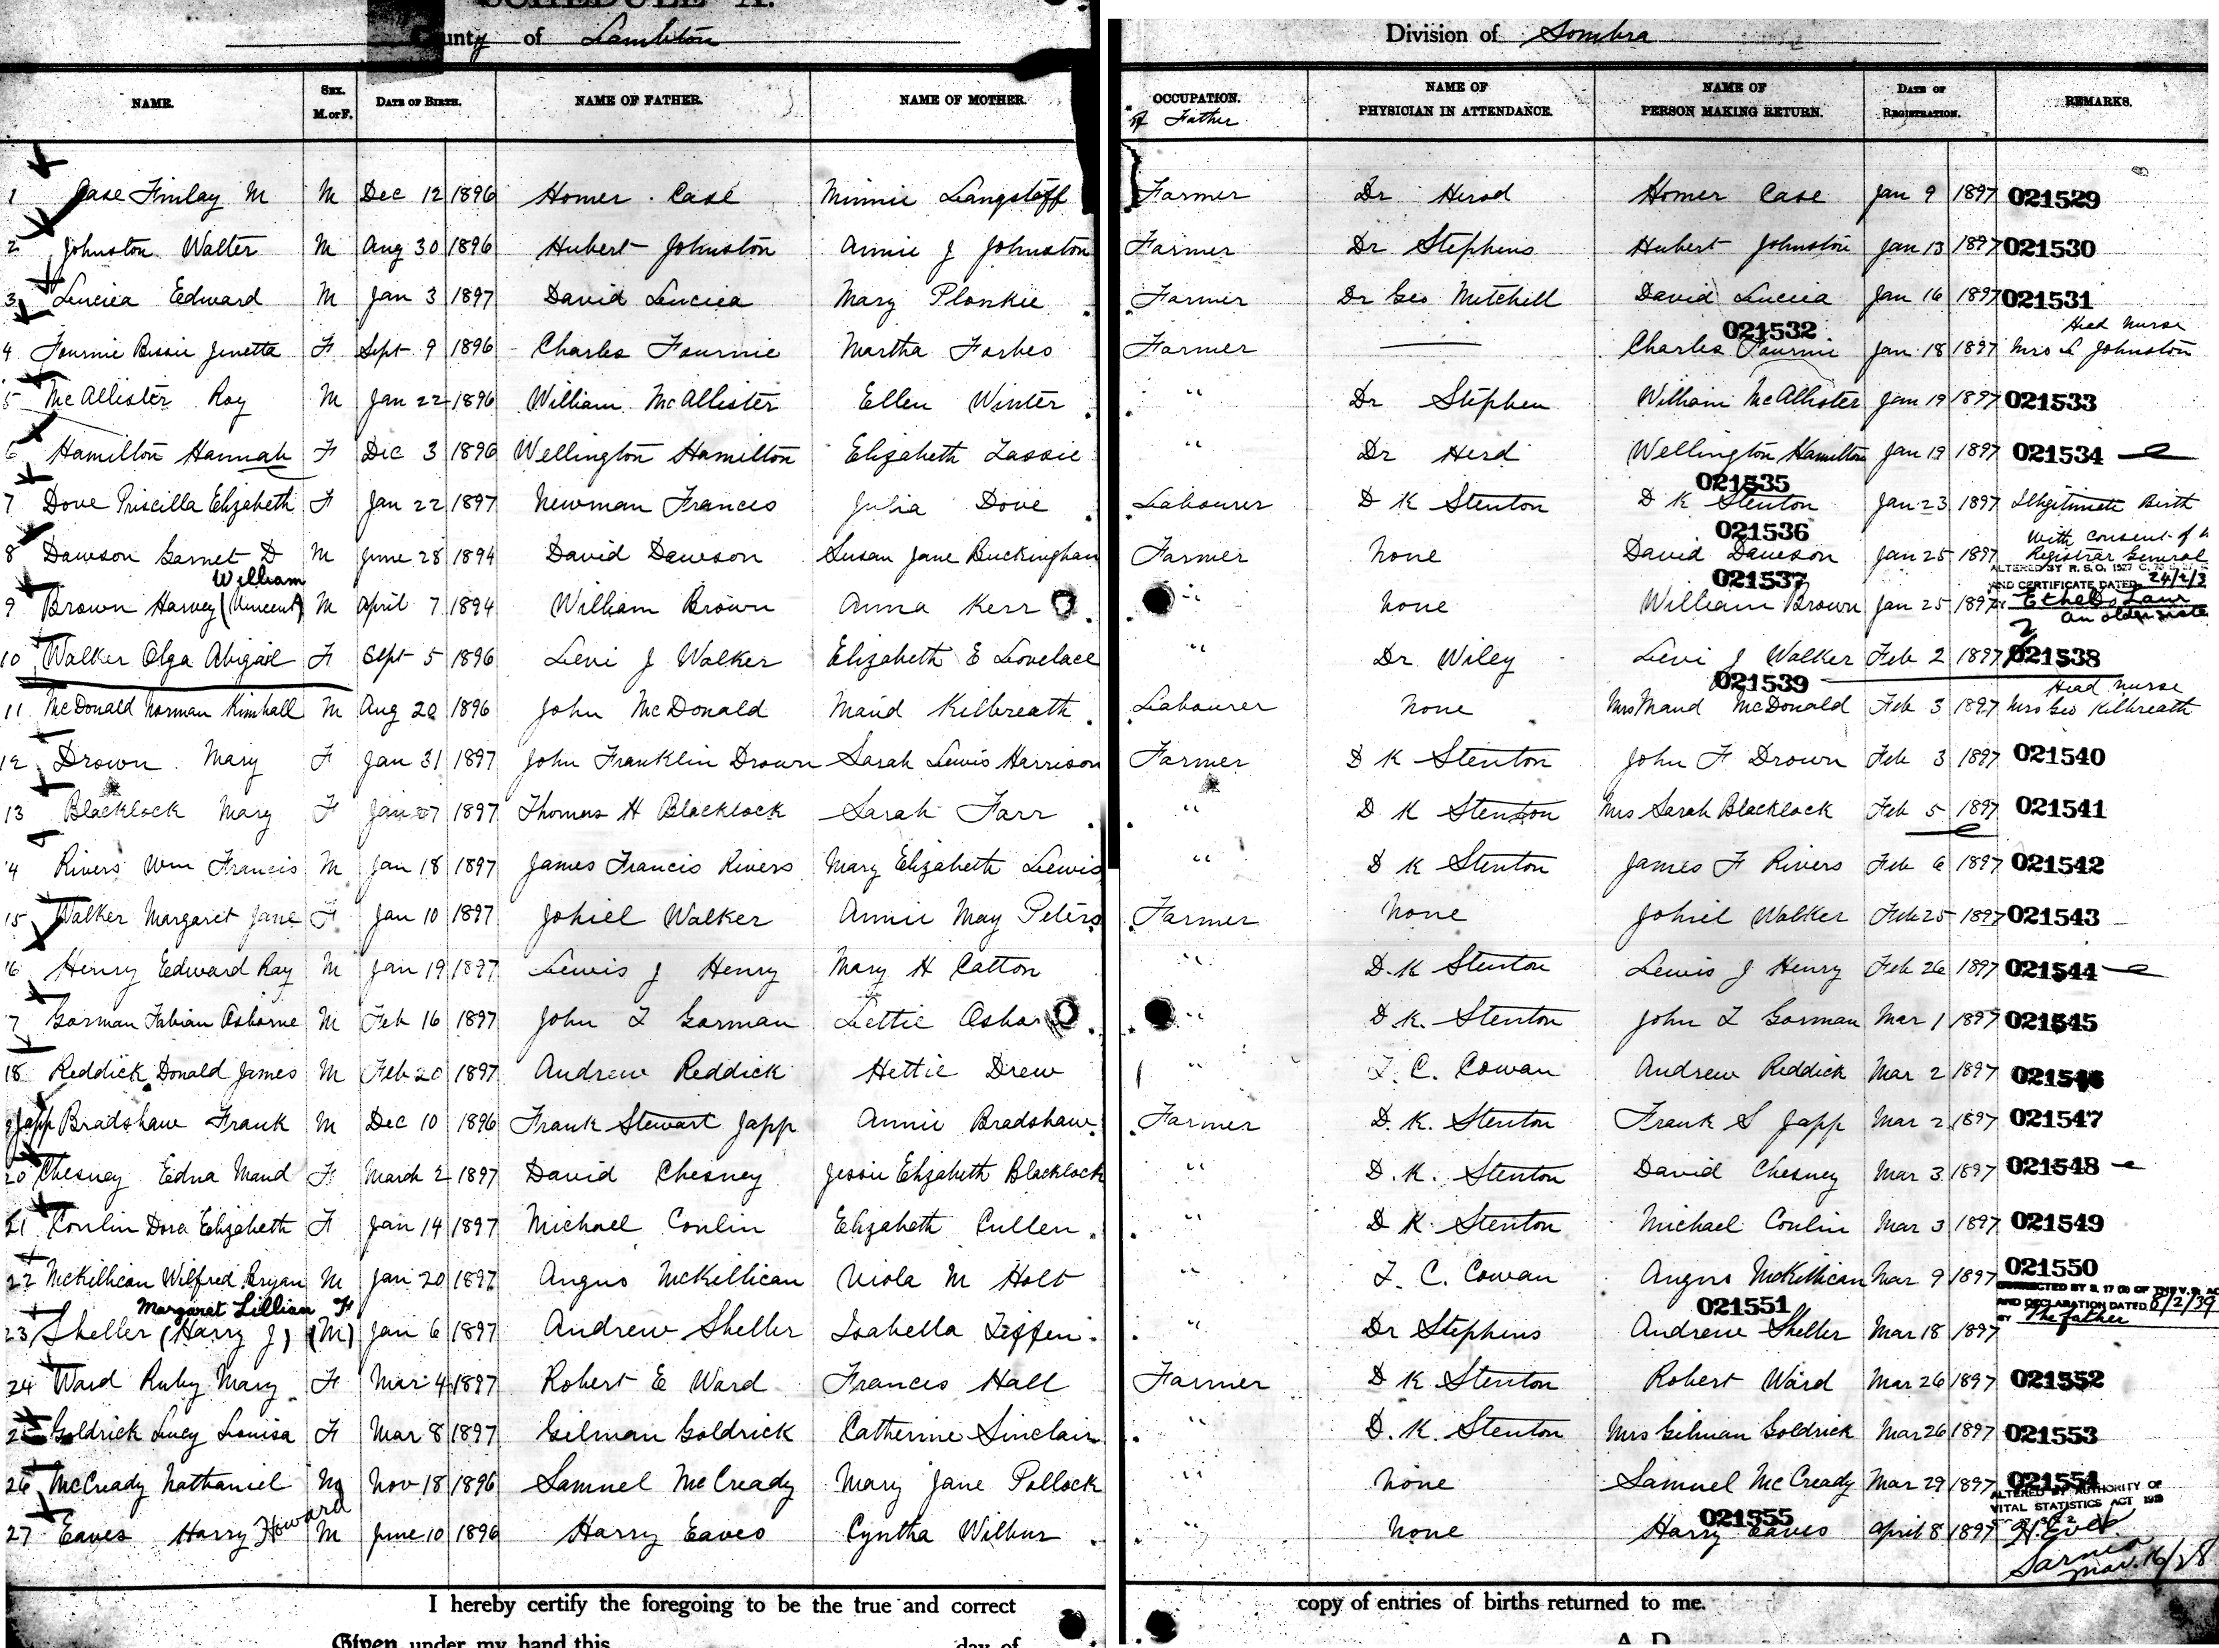 SCHEDULE A.
County of Lambton Division of Sombra
NAME. SEX. M. or F. DATE OF BIRTH. NAME OF FATHER. NAME OF MOTHER. OCCUPATION. of Father NAME OF PHYSICIAN IN ATTENDANCE. NAME OF PERSON MAKING RETURN. DATE OF REGISTRATION. REMARKS.
1 Case Finlay M M Dec 12 1896 Homer Case Minnie Langstaff Farmer Dr Herod Homer Case Jan 9 1897 021529
2 Johnston Walter M Aug 30 1896 Hubert Johnston Annie J Johnston Farmer Dr Stephens Hubert Johnston Jan 13 1897 021530
3 Luciea Edward M Jan 3 1897 David Luciea Mary Plonkie Farmer Dr Geo Mitchell David Luciea Jan 16 1897 021531
021532 Head Nurse
4 Fournie Bissie Jenetta F Sept 9 1896 Charles Fournie Martha Forbes Farmer — Charles Fournie Jan 18 1897 Mrs L Johnston
5 McAllister Roy M Jan 22 1896 William McAllister Ellen Winter " Dr Stephen William McAllister Jan 19 1897 021533
6 Hamilton Hannah F Dec 3 1896 Wellington Hamilton Elizabeth Lassie " Dr Herd Wellington Hamilton Jan 19 1897 021534
021535
7 Dove Priscilla Elizabeth F Jan 22 1897 Newman Frances Julia Dove Labourer D K Stenton D K Stenton Jan 23 1897 Illegitimate Birth
021536 With consent of
8 Dawson Garnet D M June 28 1894 David Dawson Susan Jane Buckingham Farmer None David Dawson Jan 25 1897 Registrar General
William 021537 ALTERED BY R.S.O. 1927
AND CERTIFICATE DATED 24/2/3
9 Brown Harvey (Vincent) M April 7 1894 William Brown Anna Kerr " None William Brown Jan 25 1897 BY Ethel
an older sister
10 Walker Olga Abigail F Sept 5 1896 Levi J Walker Elizabeth E Lovelace " Dr Wiley Levi J Walker Feb 2 1897 021538
021539 Head Nurse
11 McDonald Norman Kimball M Aug 20 1896 John McDonald Maud Kilbreath Labourer None Mrs Maud McDonald Feb 3 1897 Mrs Geo Kilbreath
12 Drown Mary F Jan 31 1897 John Franklin Drown Sarah Lewis Harrison Farmer D K Stenton John F Drown Feb 3 1897 021540
13 Blacklock Mary F Jan 27 1897 Thomas H Blacklock Sarah Farr " D K Stenton Mrs Sarah Blacklock Feb 5 1897 021541
14 Rivers Wm Francis M Jan 18 1897 James Francis Rivers Mary Elizabeth Lewis " D K Stenton James F Rivers Feb 6 1897 021542
15 Walker Margaret Jane F Jan 10 1897 Johiel Walker Annie May Peters Farmer None Johiel Walker Feb 25 1897 021543
16 Henry Edward Ray M Jan 19 1897 Lewis J Henry Mary H Catton " D. K Stenton Lewis J Henry Feb 26 1897 021544
17 Gorman Fabian Osborne M Feb 16 1897 John L Gorman Lettie " D K. Stenton John L Gorman Mar 1 1897 021545
18 Reddick Donald James M Feb 20 1897 Andrew Reddick Hettie Drew " T. C. Cowan Andrew Reddick Mar 2 1897 021546
19 Japp Bradshaw Frank M Dec 10 1896 Frank Stewart Japp Annie Bradshaw Farmer D. K. Stenton Frank S Japp Mar 2 1897 021547
20 Chesney Edna Maud F March 2 1897 David Chesney Jessie Elizabeth Blacklock " D. K. Stenton David Chesney Mar 3 1897 021548
21 Conlin Dora Elizabeth F Jan 14 1897 Michael Conlin Elizabeth Cullen " D K Stenton Michael Conlin Mar 3 1897 021549
22 McKillican Wilfred Bryan M Jan 20 1897 Angus McKillican Viola M Holt " T. C. Cowan Angus McKillican Mar 9 1897 021550
Margaret Lillian F 021551 CORRECTED BY S. 17 OF THE V.S. AC
AND DECLARATION DATED 8/2/39
BY The father
23 Sheller (Harry J) (M) Jan 6 1897 Andrew Sheller Isabella Tiffen " Dr Stephens Andrew Sheller Mar 18 1897
24 Ward Ruby Mary F Mar 4 1897 Robert E Ward Frances Hall Farmer D K Stenton Robert Ward Mar 26 1897 021552
25 Goldrick Lucy Louisa F Mar 8 1897 Gilman Goldrick Catherine Sinclair " D. K. Stenton Mrs Gilman Goldrick Mar 26 1897 021553
26 McCready Nathaniel M Nov 18 1896 Samuel McCready Mary Jane Pollock " None Samuel McCready Mar 29 1897 021554
Howard 021555 ALTERED BY AUTHORITY OF
VITAL STATISTICS ACT
27 Eaves Harry M June 10 1896 Harry Eaves Cyntha Wilbur " None Harry Eaves April 8 1897
Sarnia
Mar. 16/28
I hereby certify the foregoing to be the true and correct copy of entries of births returned to me.
Given under my hand this day of A. D.